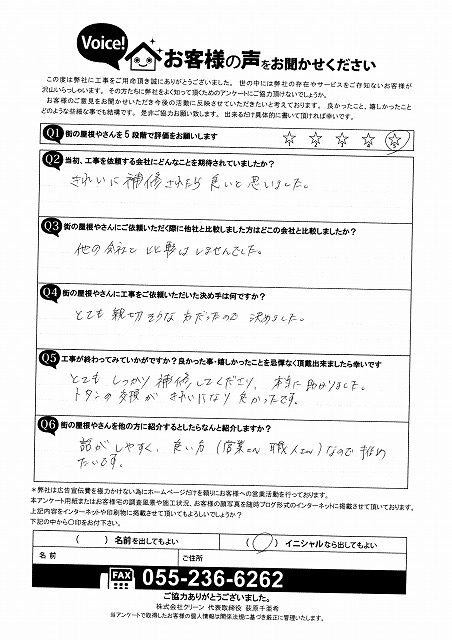 Voice!
お客様の声をお聞かせください
この度は弊社に工事をご用命頂き誠にありがとうございました。世の中には弊社の存在やサービスをご存知ないお客様が
沢山いらっしゃいます。その方たちに弊社をよく知って頂くためのアンケートにご協力頂けないでしょうか。
お客様のご意見をお聞かせいただき今後の活動に反映させていただきたいと考えております。良かったこと、嬉しかったこと
どのような些細な事でも結構です。是非ご協力お願い致します。出来るだけ具体的に書いて頂ければ幸いです。
Q1 街の屋根やさんを5段階で評価をお願いします ☆ ☆ ☆ ☆ ☆
Q2 当初、工事を依頼する会社にどんなことを期待されていましたか？
きれいに補修されたら良いと思いました。
Q3 街の屋根やさんにご依頼いただく際に他社と比較しました方はどこの会社と比較しましたか？
他の会社と比較はしませんでした。
Q4 街の屋根やさんに工事をご依頼いただいた決め手は何ですか？
とても親切そうな方だったので決めました。
Q5 工事が終わってみていかがですか？良かった事・嬉しかったことを忌憚なく頂戴出来ましたら幸いです
とてもしっかり補修してくださり、本当に助かりました。
トタンの交換がきれいになり良かったです。
Q6 街の屋根やさんを他の方に紹介するとしたらなんと紹介しますか？
話がしやすく、良い方（営業さん 職人さん）なので推め
たいです。
＊弊社は広告宣伝費を極力かけない為にホームページだけを頼りにお客様への営業活動を行っております。
本アンケート用紙またはお客様宅の調査風景や施工状況、お客様の顔写真を随時ブログ形式のインターネットに掲載させて頂いております。
上記内容をインターネットや印刷物に掲載させて頂いてもよろしいでしょうか？
下記の中から〇印をお付下さい。
（　　）名前を出してもよい （〇）イニシャルなら出してもよい
名 前 ご住所
FAX 055-236-6262
ご協力ありがとうございました。
株式会社クリーン 代表取締役 荻原千亜希
当アンケートで取得したお客様の個人情報は関係法規に基づき厳正に管理いたします。